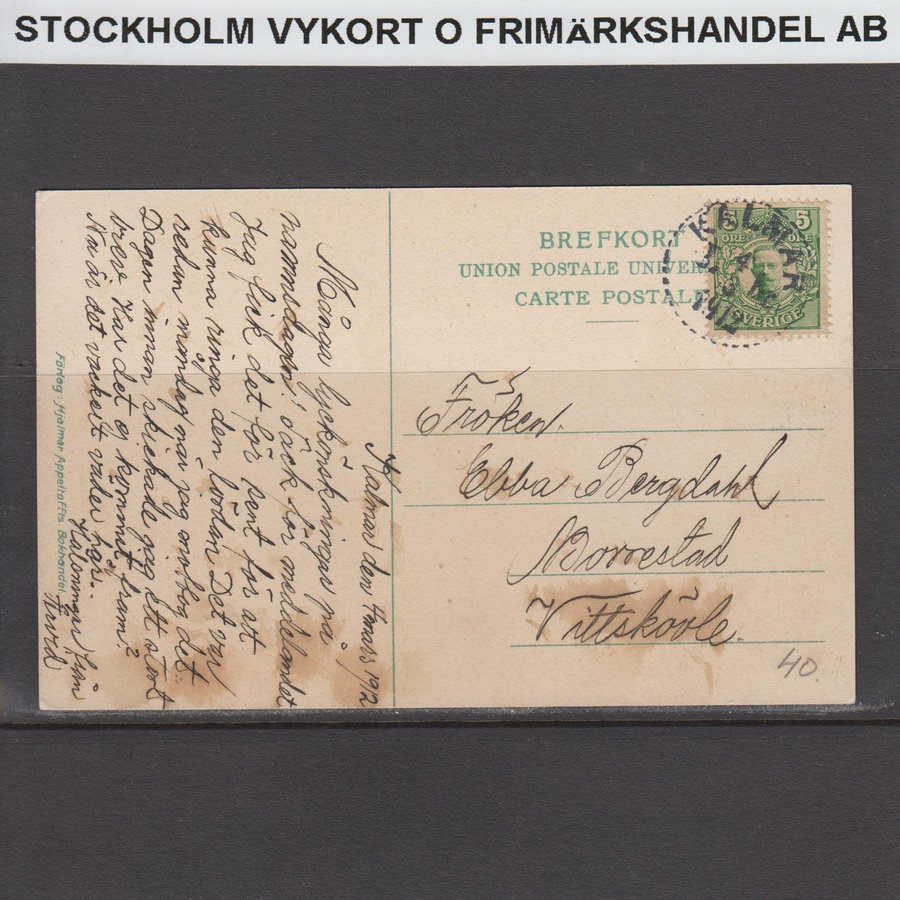 STOCKHOLM VYKORT O FRIMÄRKSHANDEL AB
BREFKORT
UNION POSTALE UNIVER
CARTE POSTALE
5 5
ÖRE ÖRE
SVERIGE
KALMAR
1912
Fröken
Ebba Bergdahl
Borrestad
Vittskövle.
40.
Kalmar den 4 mars 1912
Många lyckönskningar på
namnsdagen, o tack för meddelandet
Jag fick det för sent för att
kunna ringa den lördan. Det var
redan måndag när jag
Dagen innan skickade jag ett stort
brev har det ej kommit fram?
Nu är det vackert väder här.
Hälsningar från
Sivrid
Förlag: Hjalmar Appeltoffts Bokhandel